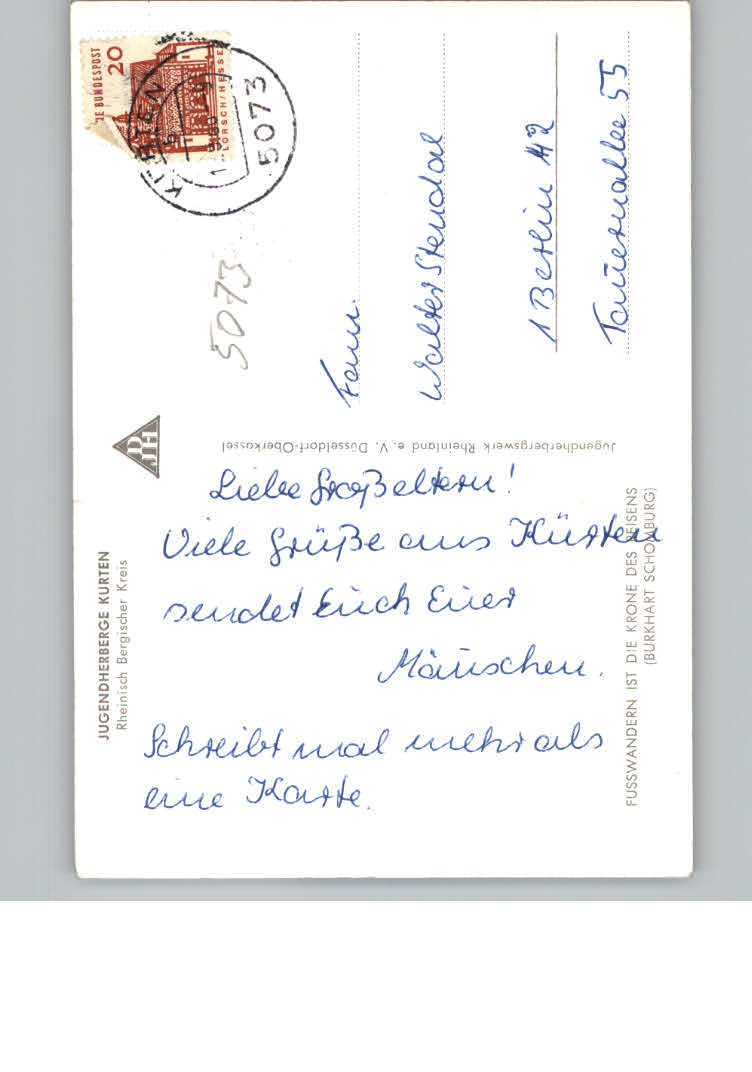 JUGENDHERBERGE KÜRTEN
Rheinisch Bergischer Kreis
Liebe Großeltern!
Viele Grüße aus Kürten
sendet Euch Euer
Mäuschen.
Schreibt mal mehr als
eine Karte.
FUSSWANDERN IST DIE KRONE DES REISENS
(BURKHART SCHOMBURG)
DJH
Jugendherbergswerk Rheinland e. V. Düsseldorf-Oberkassel
E BUNDESPOST
20
LORSCH/HESSEN
KÜRTEN
5073
5073
Fam.
Walter Stendal
1 Berlin 42
Tauernallee 55